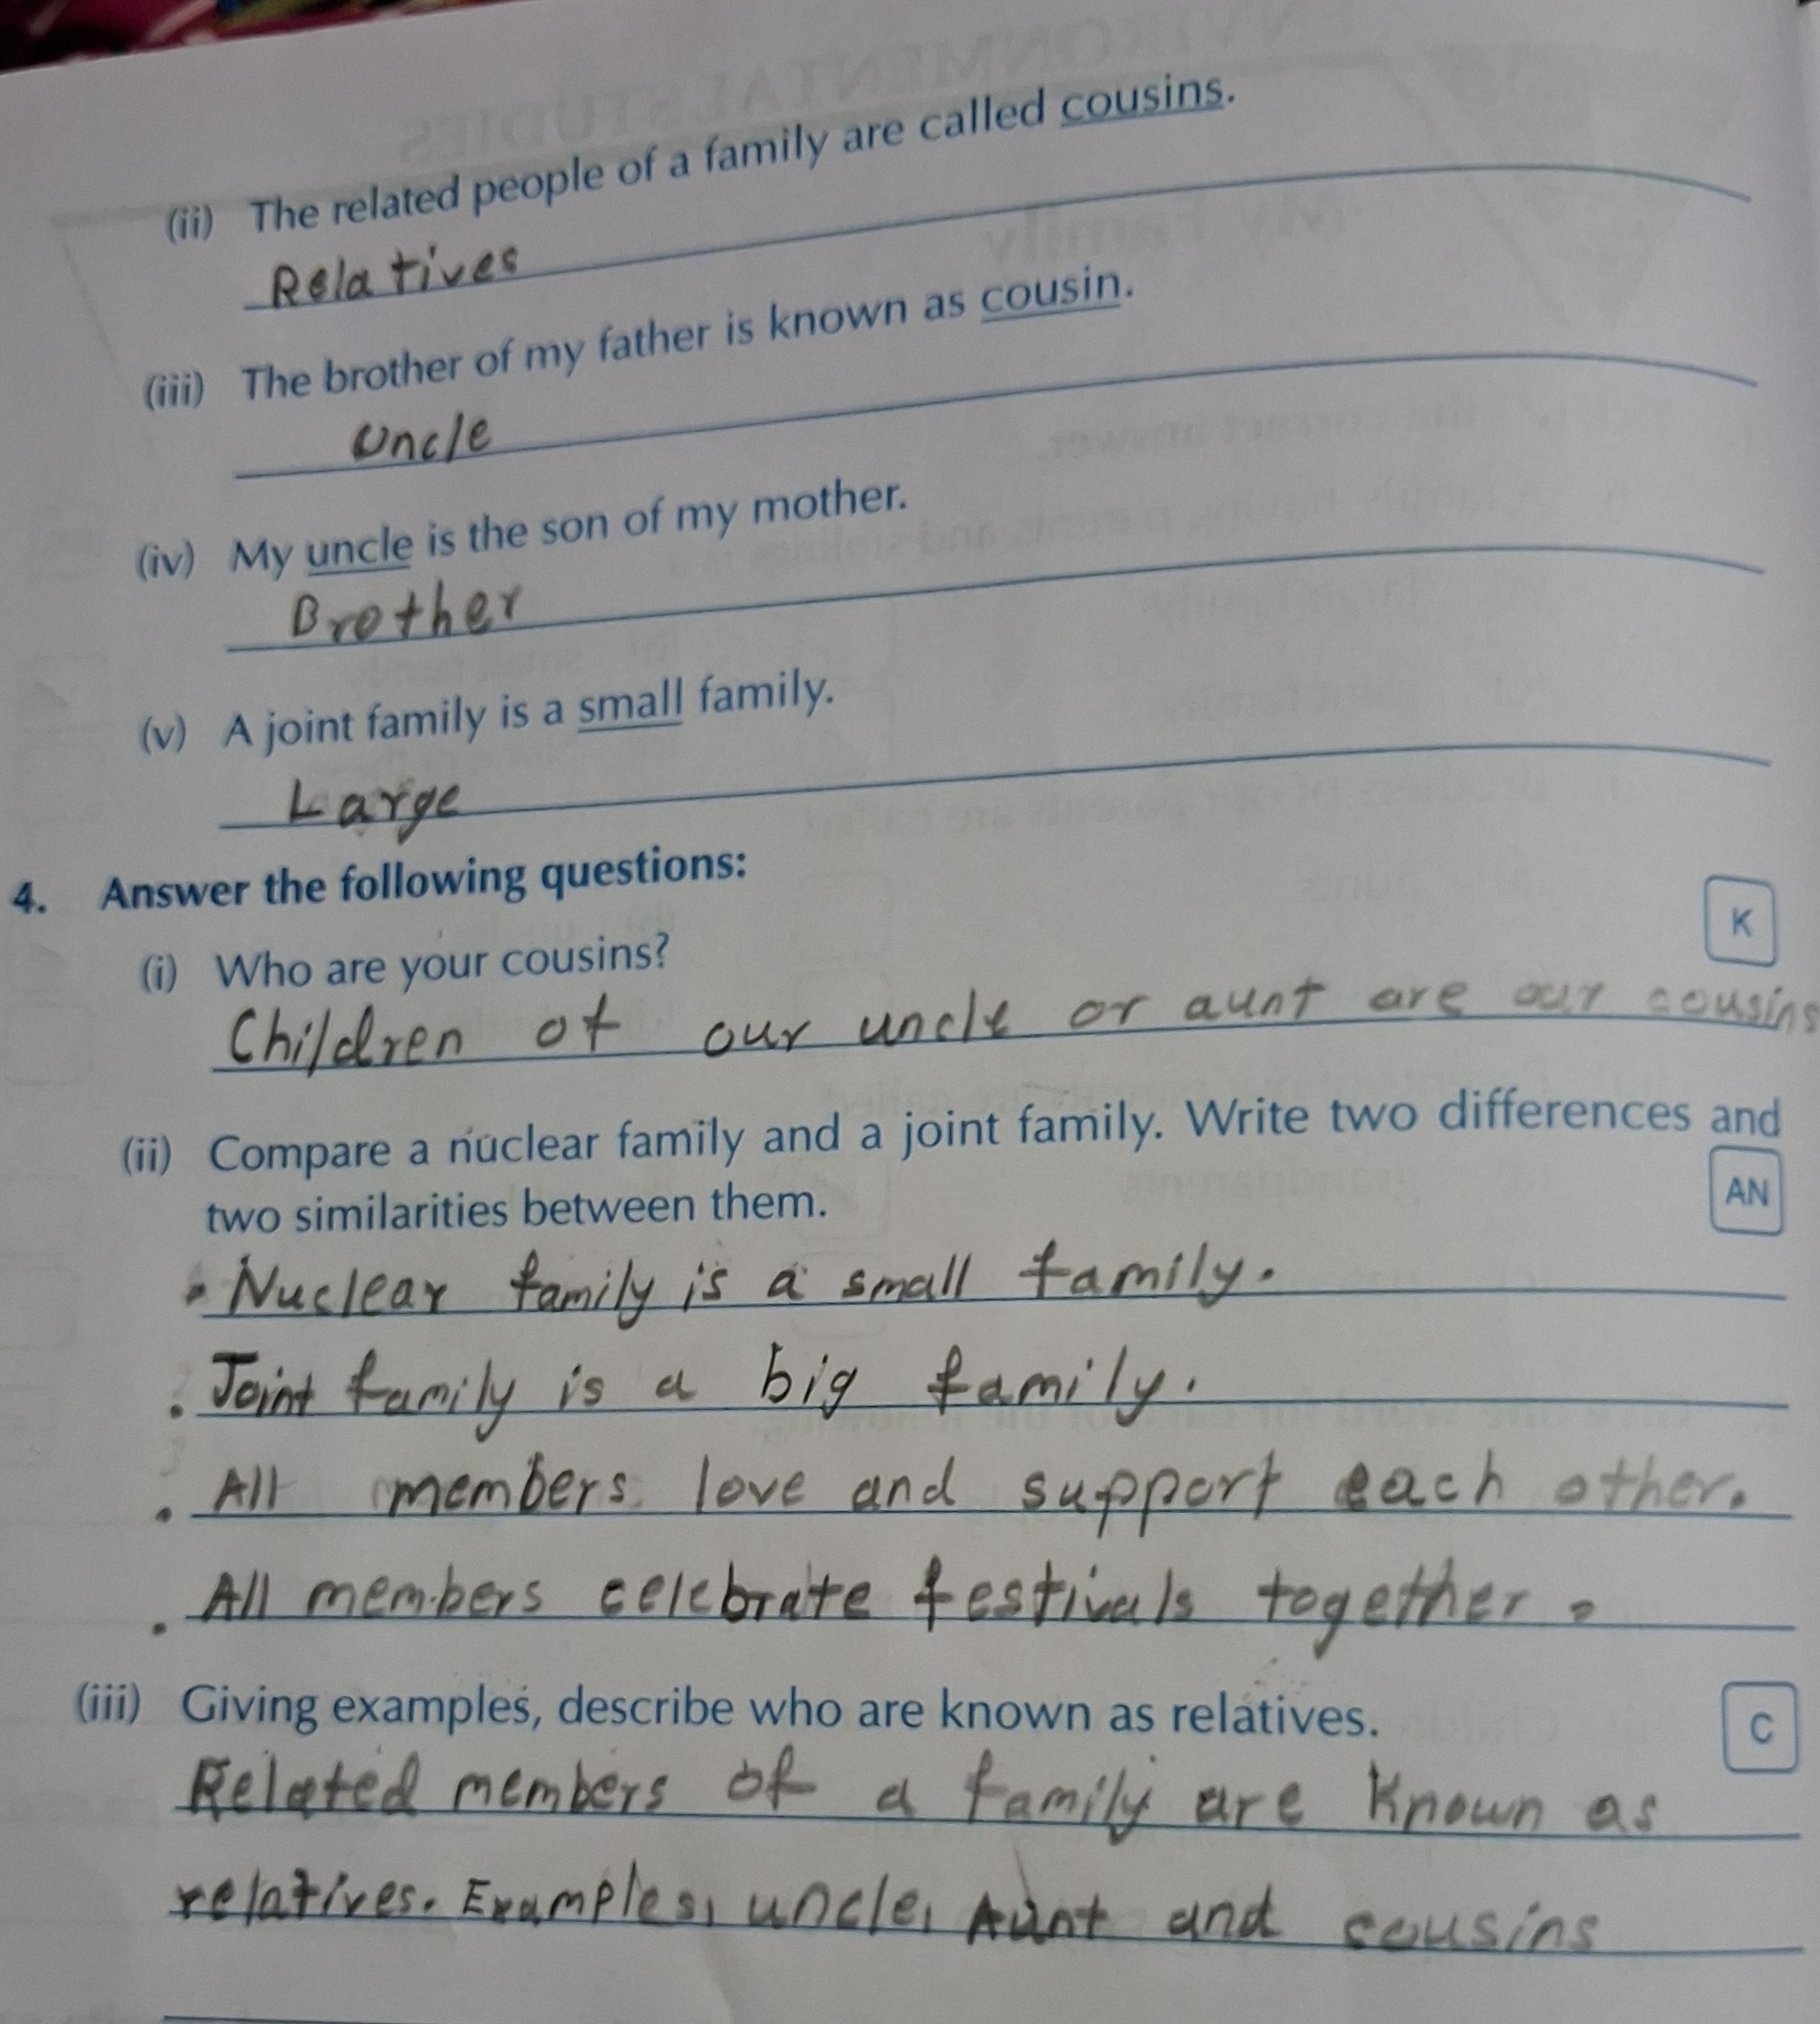 (ii) The related people of a family are called cousins.
Relatives
(iii) The brother of my father is known as cousin.
Uncle
(iv) My uncle is the son of my mother.
Brother
(v) A joint family is a small family.
Large
4. Answer the following questions:
K
(i) Who are your cousins?
Children of our uncle or aunt are our cousins
(ii) Compare a nuclear family and a joint family. Write two differences and
two similarities between them.
AN
• Nuclear family is a small family.
• Joint family is a big family.
• All members love and support each other.
• All members celebrate festivals together.
(iii) Giving examples, describe who are known as relatives.
C
Related members of a family are known as
relatives. Examples, uncle, Aunt and cousins